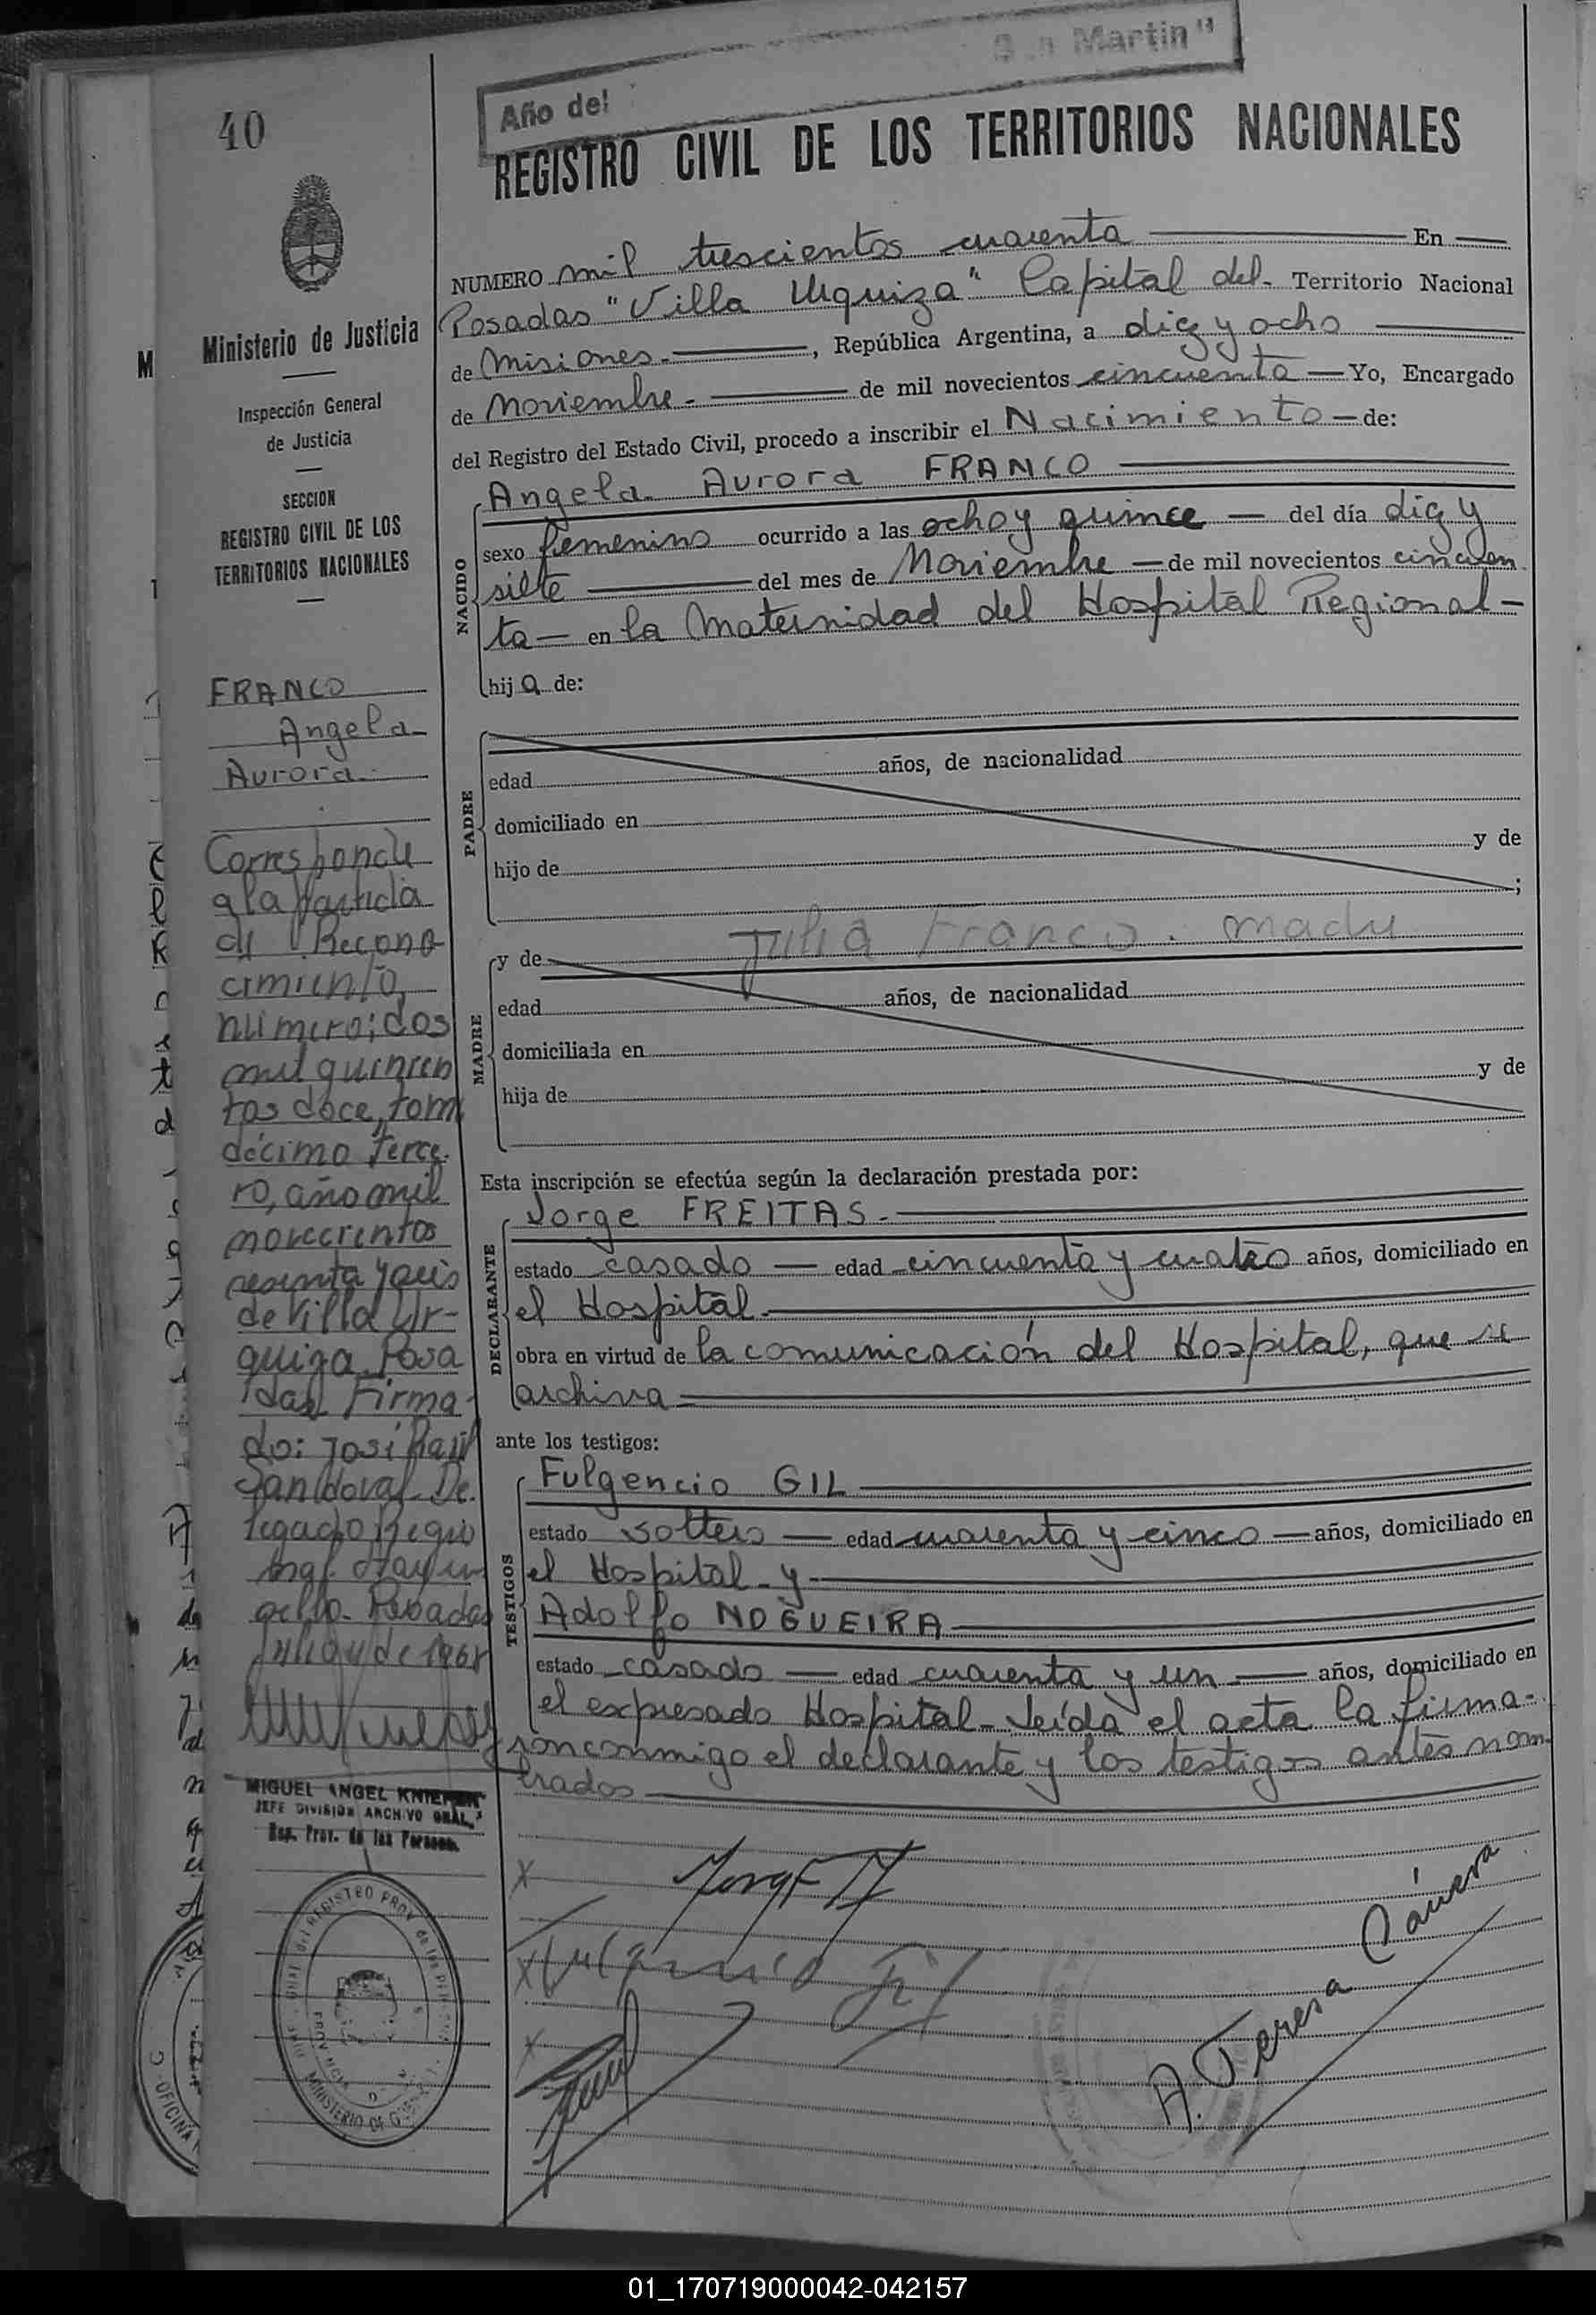 40
Año del
Martin"
REGISTRO CIVIL DE LOS TERRITORIOS NACIONALES
Ministerio de Justicia
Inspección General
de Justicia
SECCION
REGISTRO CIVIL DE LOS
TERRITORIOS NACIONALES
FRANCO
Angela
Aurora
Corresponde
a la partida
de Recono
cimiento,
número: dos
mil quinien
tos doce, tomo
décimo terce
ro, año mil
novecientos
sesenta y
de Villa Ur-
quiza Posa
das Firma
do: José Raúl
Sandoval De
legado Regio
nal.
Posadas
de 1968
MIGUEL ANGEL
JEFE DIVISION ARCHIVO GRAL.
Reg. Prov. de las Personas
NUMERO mil trescientos cuarenta En
Posadas "Villa Urquiza" Capital del Territorio Nacional
de Misiones.-, República Argentina, a diez y ocho
de Noviembre.- de mil novecientos cincuenta Yo, Encargado
del Registro del Estado Civil, procedo a inscribir el Nacimiento de:
NACIDO
Angela Aurora FRANCO
sexo femenino ocurrido a las ocho y quince del día diez y
siete del mes de Noviembre de mil novecientos cincuen
ta en la Maternidad del Hospital Regional
hija de:
PADRE
edad años, de nacionalidad
domiciliado en
hijo de y de
;
MADRE
y de Julia Franco. madre
edad años, de nacionalidad
domiciliada en
hija de y de
Esta inscripción se efectúa según la declaración prestada por:
DECLARANTE
Jorge FREITAS.-
estado casado edad cincuenta y cuatro años, domiciliado en
el Hospital.
obra en virtud de la comunicación del Hospital, que se
archiva
ante los testigos:
TESTIGOS
Fulgencio GIL
estado soltero edad cuarenta y cinco años, domiciliado en
el Hospital y
Adolfo NOGUEIRA
estado casado edad cuarenta y un años, domiciliado en
el expresado Hospital.- Leída el acta la firma-
ron conmigo el declarante y los testigos antes nom
brados
A. Teresa Cánera
01_170719000042-042157